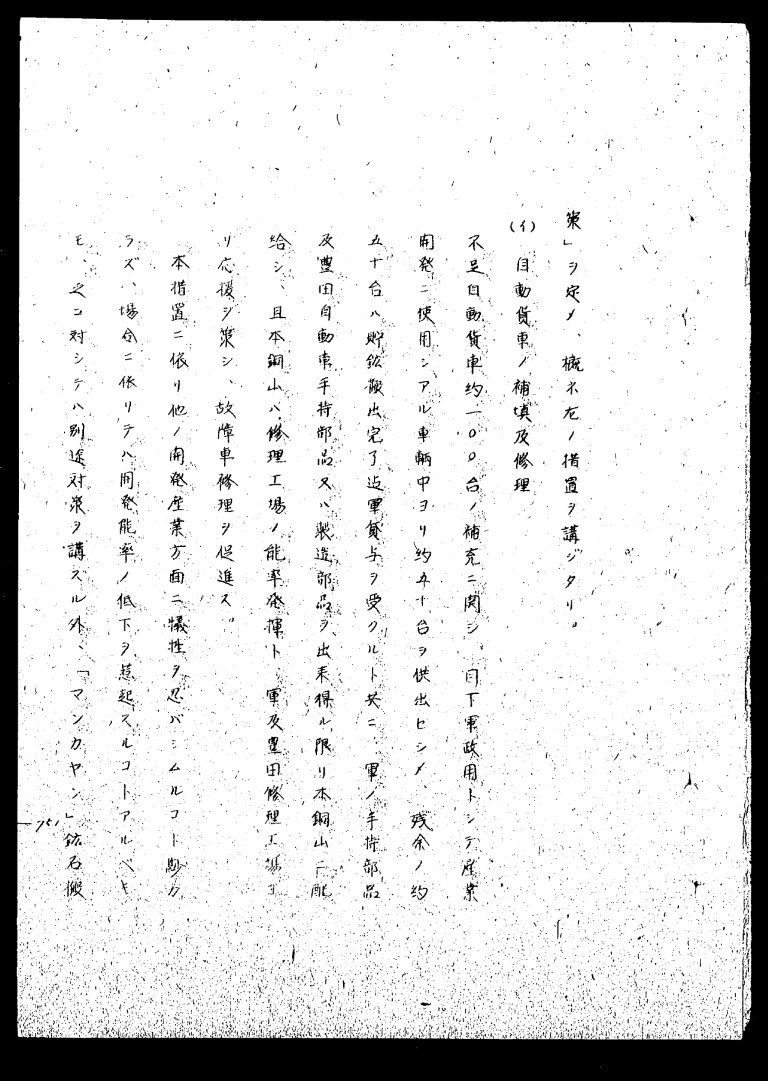 策」ヲ定メ、概ネ左ノ措置ヲ講ジタリ。
(イ) 自動貨車ノ補填及修理
不足自動貨車約一〇〇台ノ補充ニ関シ、目下軍政用トシテ産業
開発ニ使用シアル車輌中ヨリ約五十台ヲ供出セシメ、残余ノ約
五十台ハ貯鉱搬出完了迄軍貸与ヲ受クルト共ニ、軍ノ手持部品
及豊田自動車手持部品又ハ製造部品ヲ出来得ル限リ本銅山ニ配
給シ、且本銅山ハ修理工場ノ能率発揮ト、軍及豊田修理工場ヨ
リ応援ヲ策シ、故障車修理ヲ促進ス。
本措置ニ依リ他ノ開発産業方面ニ犠牲ヲ忍バシムルコト尠カ
ラズ、場合ニ依リテハ開発能率ノ低下ヲ惹起スルコトアルベキ
モ、之ニ対シテハ別途対策ヲ講ズル外、「マンカヤン」鉱石搬
751